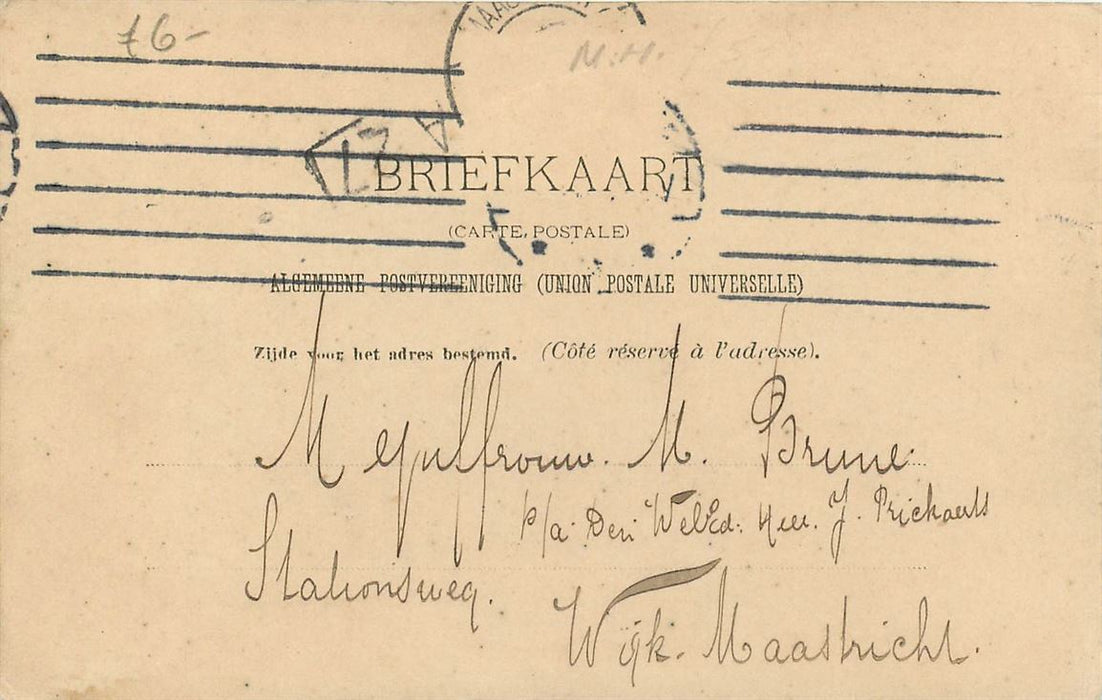 76-
MAAS
M.H.
BRIEFKAART
(CARTE POSTALE)
ALGEMEENE POSTVEREENIGING (UNION POSTALE UNIVERSELLE)
Zijde voor het adres bestemd. (Côté réservé à l'adresse).
Mejuffrouw. M. Brune
p/a Den WelEd: Heer. J. Prickaerts
Stationsweg.
Wijk-Maastricht.